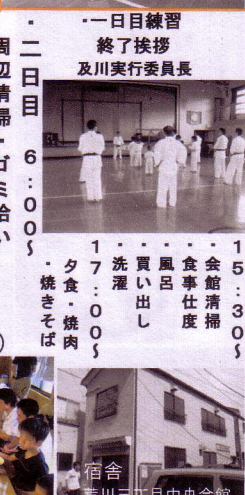 ・一日目練習
終了挨拶
及川実行委員長
15:30~
・会館清掃
・食事仕度
・風呂
・買い出し
・洗濯
17:00~
夕食・焼肉
・焼きそば
・二日目 6:00~
周辺清掃・ゴミ拾い
宿舎
荒川三丁目中央会館